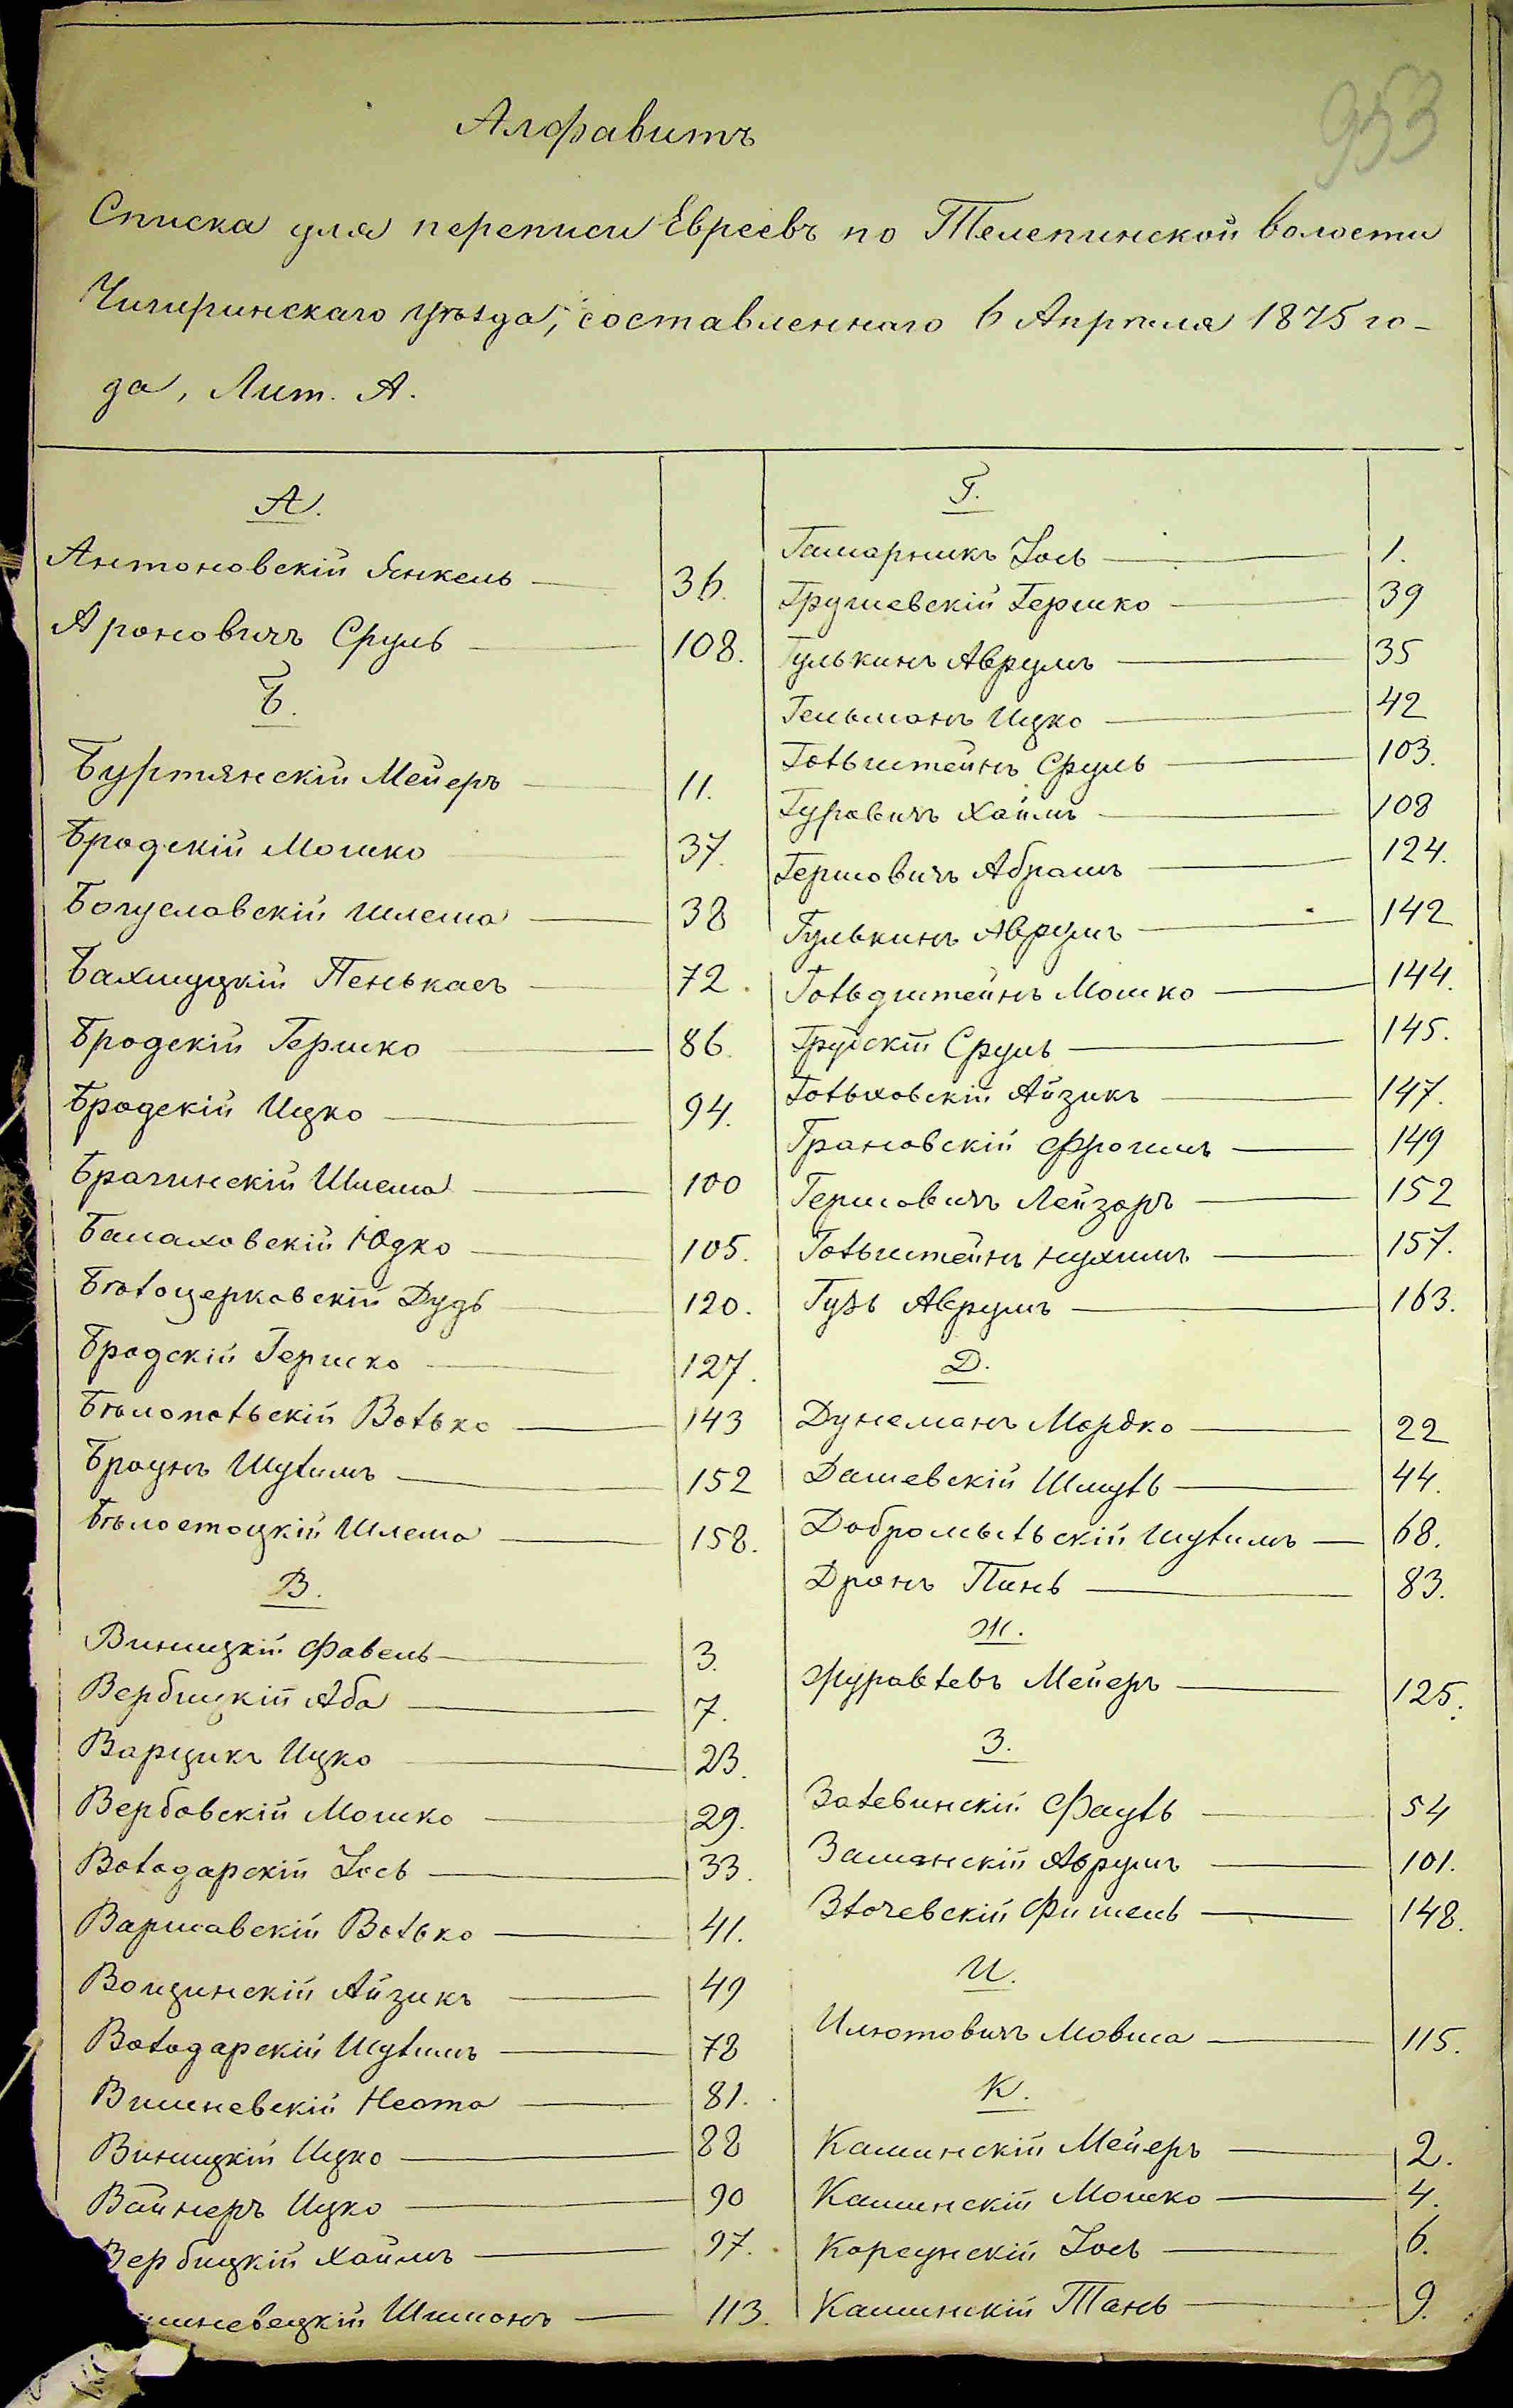 953
Алфавитъ
Списка для переписи Евреевъ по Телепинской волости
Чигиринскаго уѣзда, составленнаго 6 Апрѣля 1875 го-
да, Лит. А.
А.
Антоновскій Янкель 36.
Ароновичъ Сруль 108.
Б.
Буртянскій Мейеръ 11.
Бродскій Мошко 37.
Богуславскій Шлема 38
Бахмуцкій Пенькасъ 72.
Бродскій Гершко 86.
Бродскій Ицко 94.
Брагинскій Шлема 100
Балаховскій Юдко 105.
Бѣлоцерковскій Дудь 120.
Бродскій Гершко 127.
Бѣлопольскій Волько 143
Браунъ Шулимъ 152
Бѣлостоцкій Шлема 158.
В.
Виницкій Фавель 3.
Вербицкій Аба 7.
Варцикъ Ицко 23.
Вербовскій Мошко 29.
Володарскій Іось 33.
Варшавскій Волько 41.
Волщинскій Айзикъ 49
Володарскій Шулимъ 78
Вишневскій Неота 81.
Виницкій Ицко 88
Вайнеръ Ицко 90
Вербицкій Хаимъ 97.
шневецкій Шимонъ 113.
Г.
Гамарникъ Іось 1.
Грушевскій Гершко 39
Гулькинъ Аврумъ 35
Гельманъ Ицко 42
Гольштейнъ Сруль 103.
Гуровичъ Хаимъ 108
Гершовичъ Абрамъ 124.
Гулькинъ Аврумъ 142
Гольдштейнъ Мошко 144.
Груйскій Сруль 145.
Гольховскій Айзикъ 147.
Грановскій Фроимъ 149
Гершовичъ Лейзоръ 152
Гольштейнъ Нухимъ 157.
Гузь Аврумъ 163.
Д.
Дунеманъ Мордко 22
Дашевскій Шмуль 44.
Добромыльскій Шулимъ 68.
Дронъ Пинь 83.
Ж.
Журавлевъ Мейеръ 125.
З.
Залевинскій Фауль 54
Заманскій Аврумъ 101.
Злочевскій Фишель 148.
И.
Илютовичъ Мовша 115.
К.
Каминскій Мейеръ 2.
Каминскій Мошко 4.
Корсунскій Іось 6.
Каминскій Тань 9.